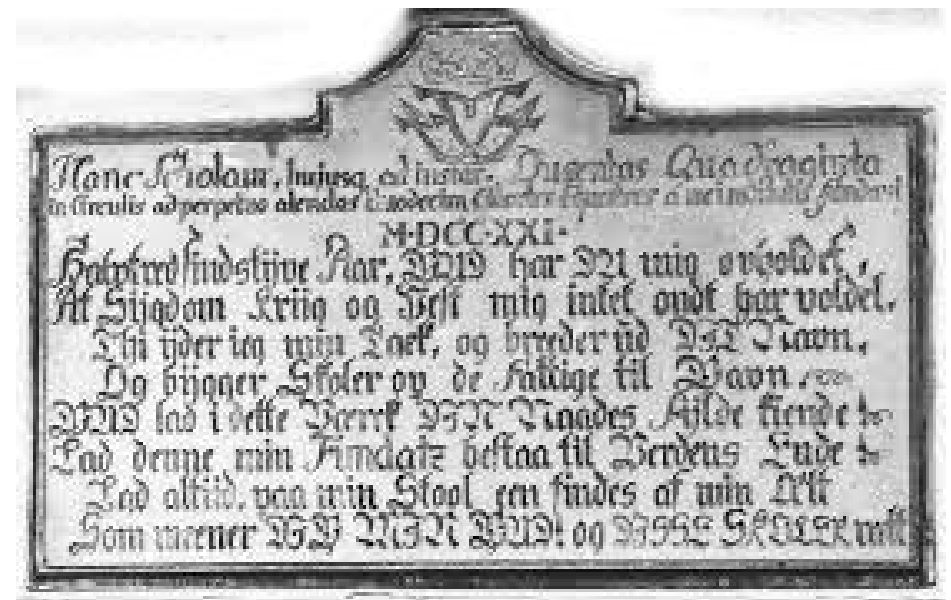 Hanc Scholam, hujusq ad instar, Ducentas Quadraginta
in Circulis ad perpetuo alendas
M·DCC·XXI·
Halvtredsindstijve Aar, GUD har DU mig opholdet,
At Sijgdom Kriig og Pest mig intet ondt har voldet.
Thi ijder ieg min Tack, og breeder ud DIT Navn,
Og bijgger Skoler op de Fattige til Gavn.
GUD lad i dette Værck DIN Naades Fijlde kiende
Lad denne min Fundatz bestaa til Verdens Ende
Lad altiid, paa min Stool een findes af min Æt
Som meener DIG MIN GUD! og DISSE SKOLER rett